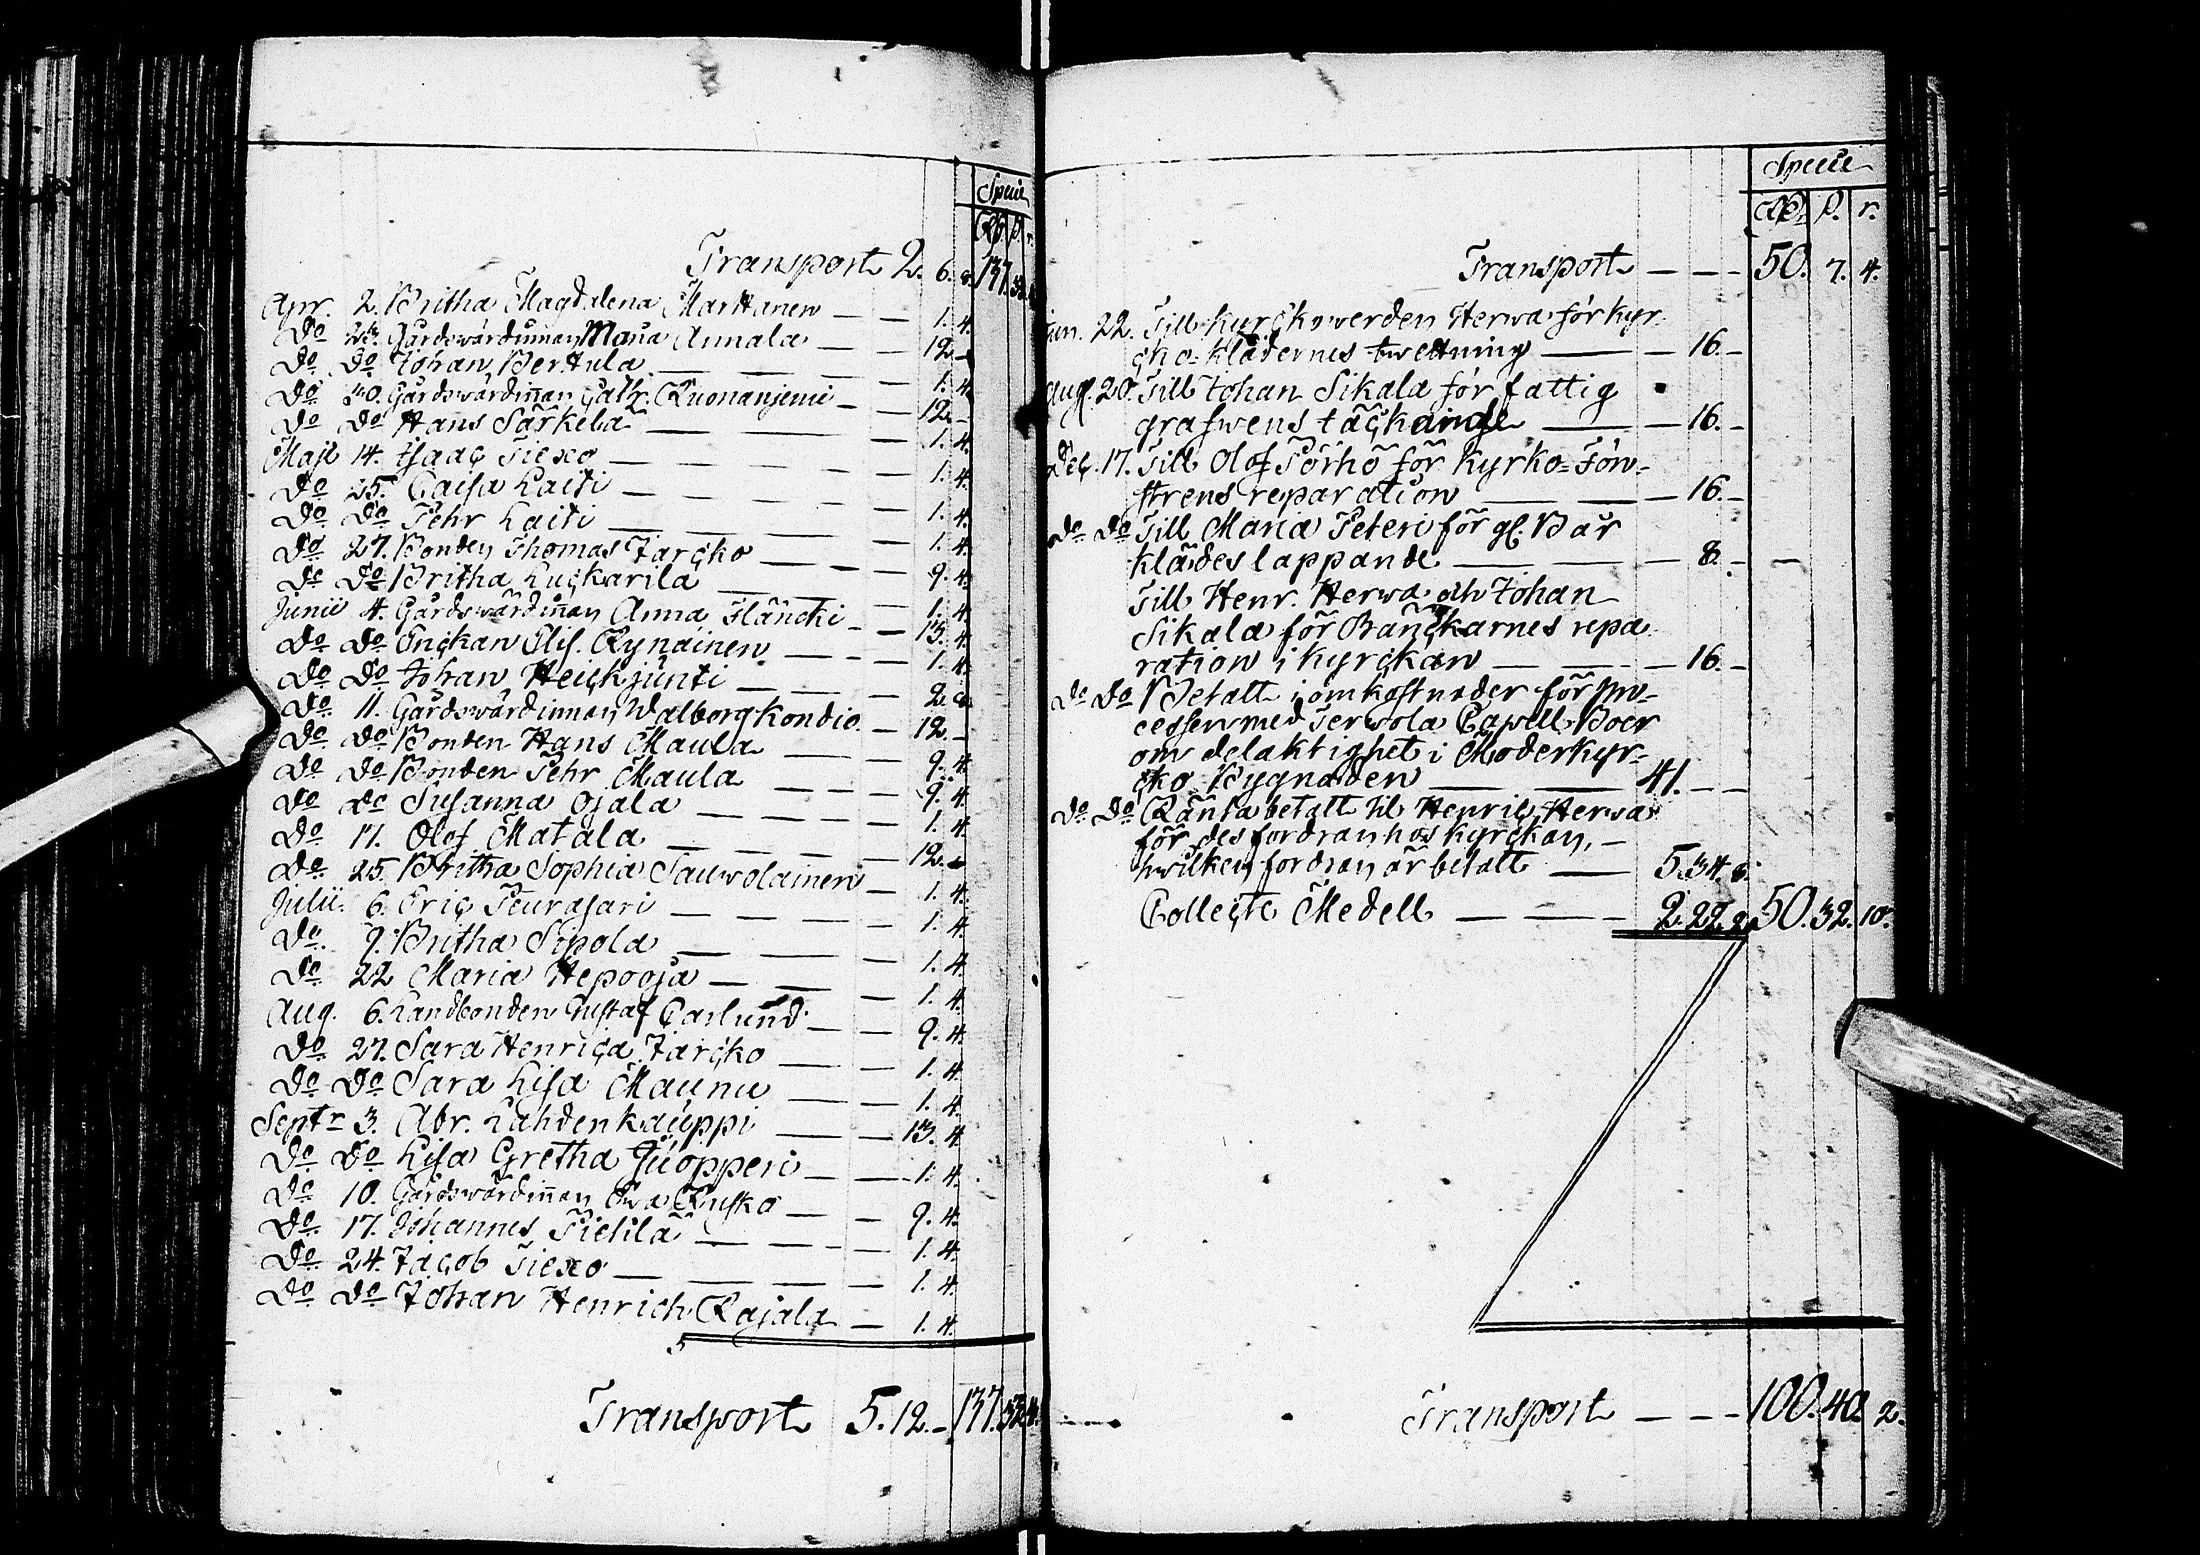 Specie
Rd. s. r.
Transport 2. 6. 8. 137.
Apr. 2. Britha Magdalena Marttanen — — 1. 4.
Do 23. Gårdswärdinnan Maria Annala — — 12. -
Do Do Johan Bertula — — — 1. 4.
Do 30. Gårdswärdinnan Cath. Ruonanjemi — — 12. -
Do Do Hans Särkelä — — — 1. 4.
Maji 14. Isaac Tiexo — — — — 1. 4.
Do 25. Caisa Laiti — — — — 1. 4.
Do Do Pehr Laiti — — — — 1. 4.
Do 27. Bonden Thomas Jarcko — — — 9. 4.
Do Do Britha Luckarila — — — 1. 4.
Junii 4. Gårdswärdinnan Anna Häncki — — 13. 4.
Do Do Enckan Elis. Rynäinen — — — 1. 4.
Do Do Johan Heickjunti — — — 2. 8.
Do 11. Gårdswärdinnan Walborg Kondio — 12. -
Do Do Bonden Hans Maula — — 9. 4.
Do Do Bonden Pehr Maula — — — 9. 4.
Do Do Susanna Ojala — — — — 1. 4.
Do 17. Olof Matala — — — — 12. -
Do 25. Britha Sophia Sauwolainen — 1. 4.
Julii 6. Eric Peurasari — — — — 1. 4.
Do 9. Britha Sipola — — — 1. 4.
Do 22 Maria Hepooja — — — 1. 4.
Aug. 6. Landbonden Gustaf Carlund — — 9. 4.
Do 27. Sara Henrica Jarcko — — — 1. 4.
Do Do Sara Lisa Maunu — — 1. 4.
Septr 3. Abr. Lahdenkauppi — — 13. 4.
Do Do Lisa Gretha Juopperi — — 1. 4.
Do 10. Gårdswärdinnan Eva Rusko — — 9. 4.
Do 17. Johannes Pietilä — — — — 1. 4.
Do 24. Jacob Tiexo — — — — 1. 4.
Do Do Johan Henrich Rajala — 1. 4.
Transport 5. 12. - 137. 32. 4.
Specie
Rd. s. r.
Transport — — — 50. 7. 4.
Jun. 22. Till kyrckowerden Herwa för kyr-
cko-klädernes twettning — — 16. -
Aug. 20. Till Johan Sikala för fattig
grafwens täckande — — 16. -
Dec. 17. Till Olof Pörhö för Kyrko-Fön-
strens reparation — — — 16. -
Do Do Till Maria Peteri för gl. Bår
klädes lappande — — — 8. -
Till Henr. Herwa och Johan
Sikala för Bänckarnes repa
ration i kyrckan — — — 16. -
Do Do Betalt i omkostnader för pro-
cessen med Terwola Capell Boer
om delaktighet i Moderkyr-
cko Bygnaden — — 41. - -
Do Do Ränta betalt til Henric Herwa
för des fordran hos kyrckan, —
hwilken fordran är betalt — 5. 34. 8.
Collecte Medell — — — 2. 22. 2. 50. 32. 10.
Transport — — — 100. 40. 2.